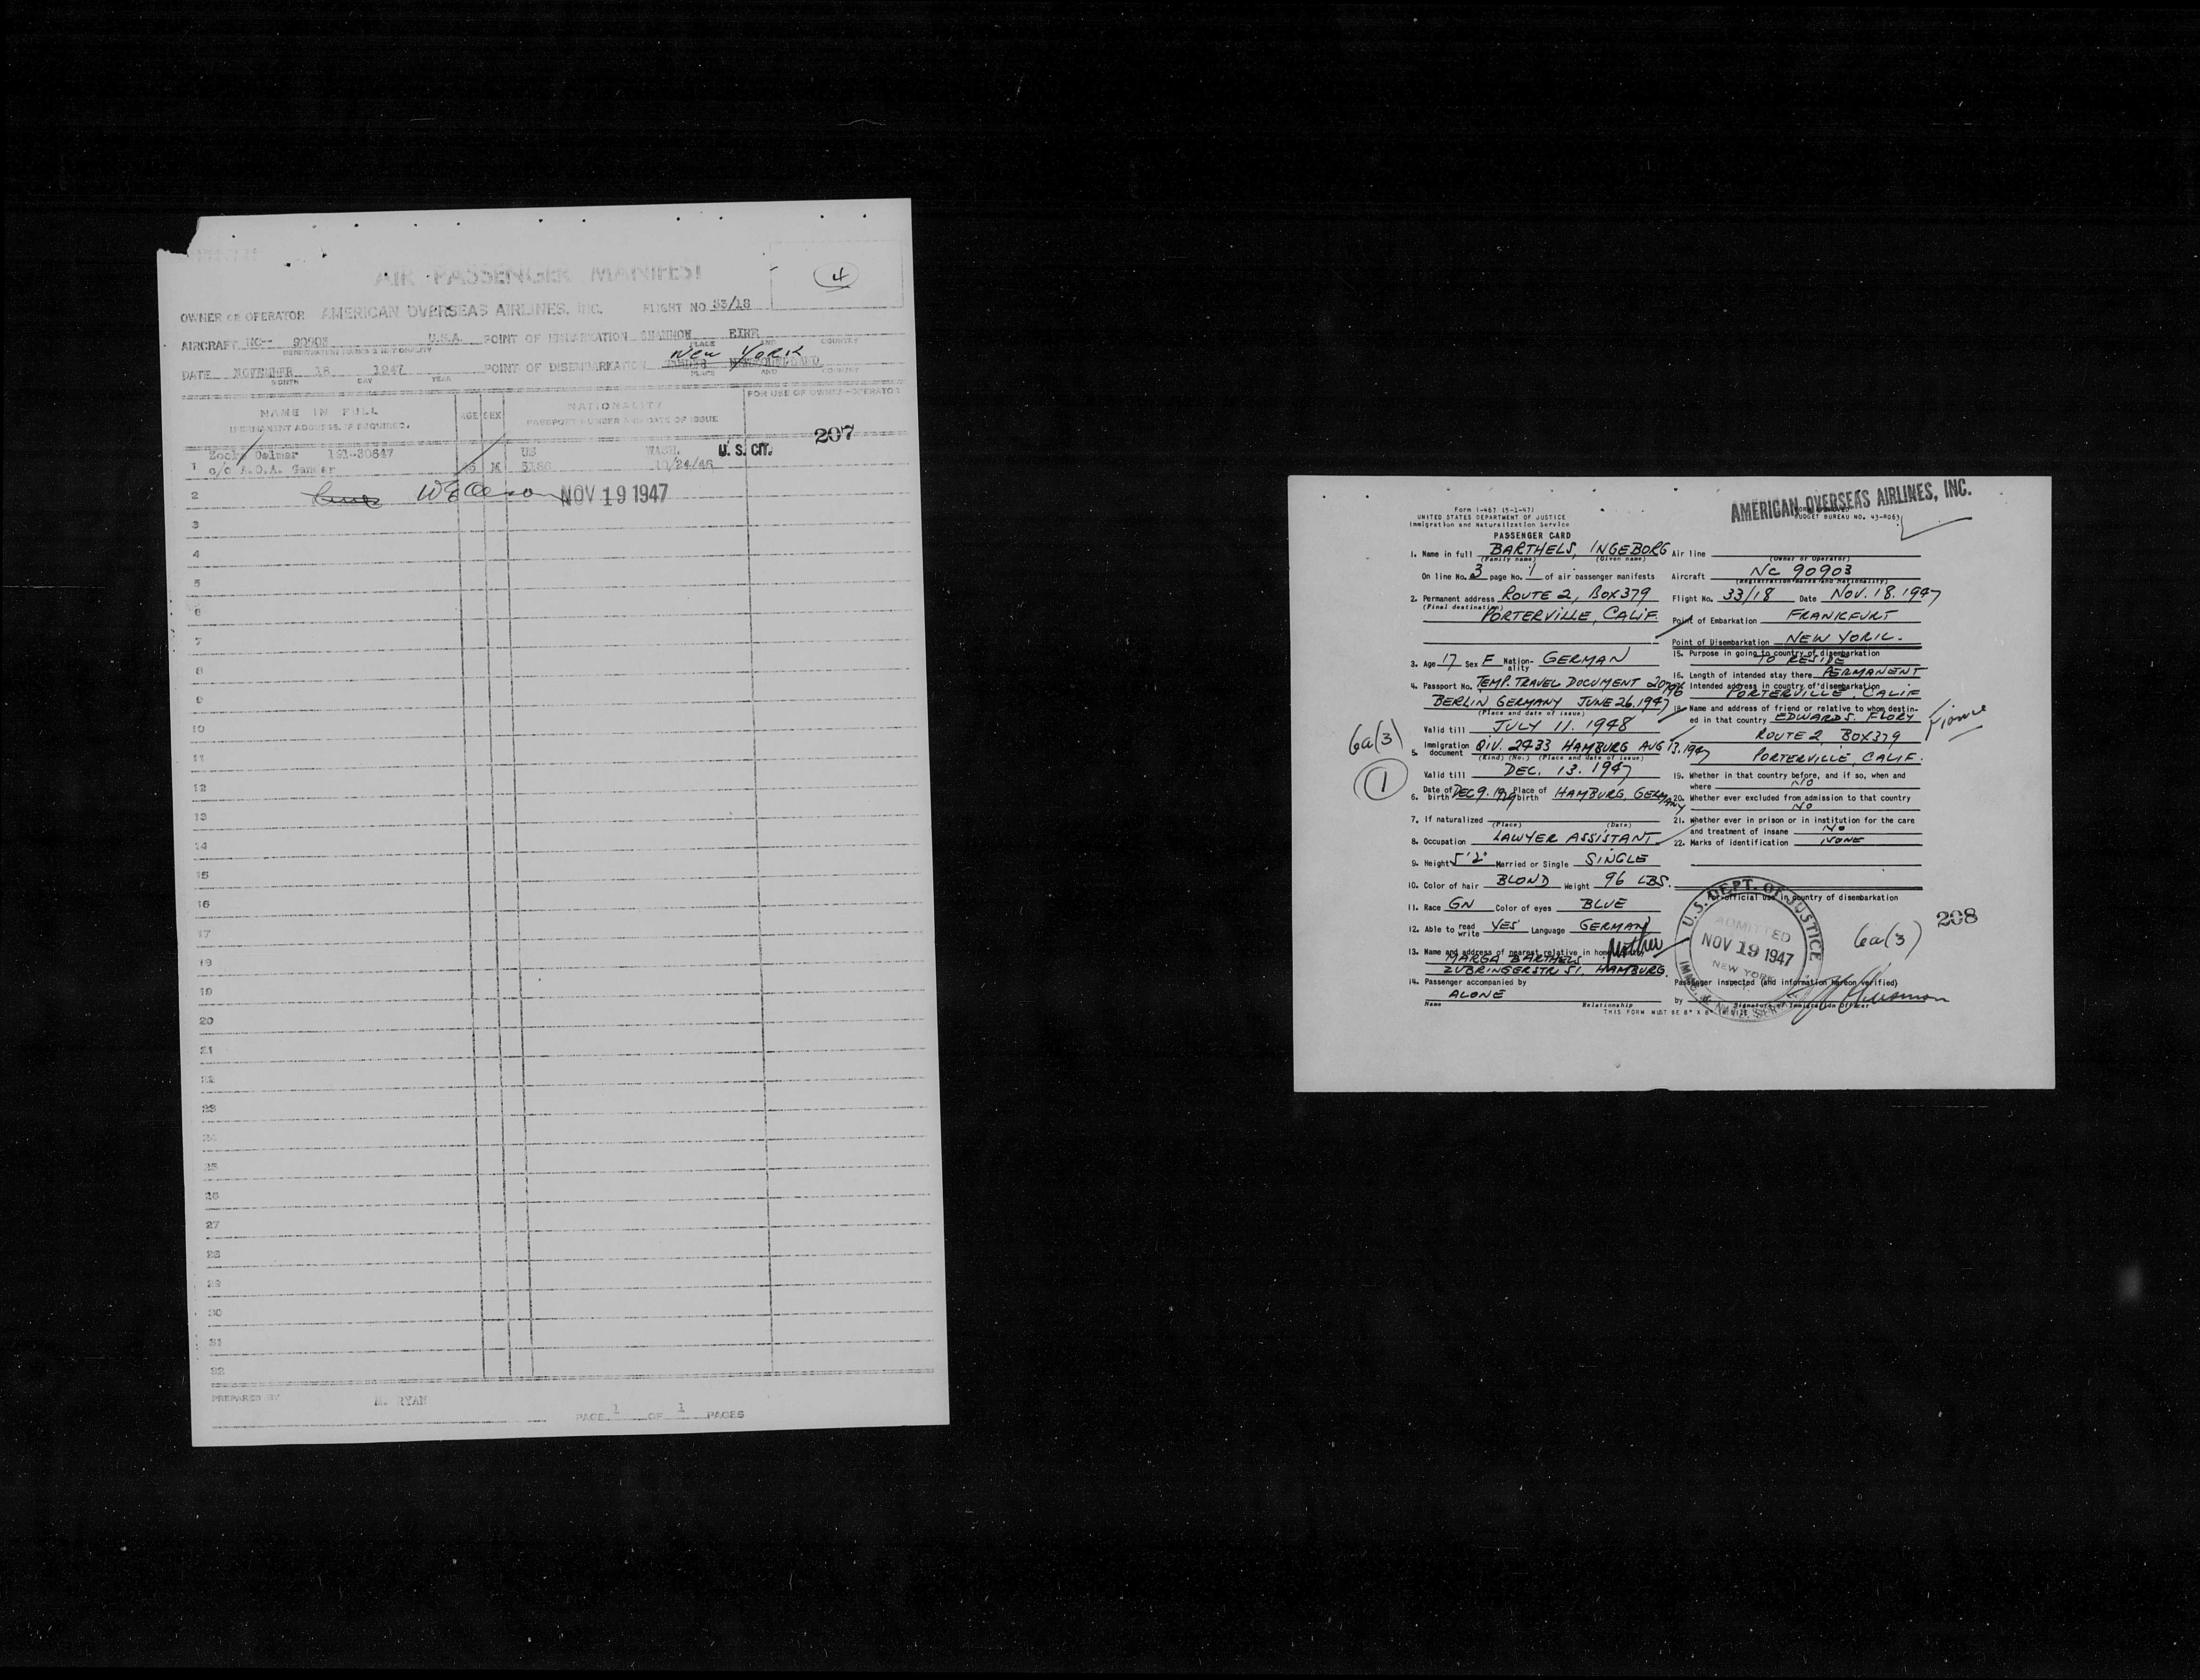 AIR PASSENGER MANIFEST
4
OWNER OR OPERATOR AMERICAN OVERSEAS AIRLINES, INC. FLIGHT NO 33/18
AIRCRAFT NC-- 90903 U.S.A. POINT OF EMBARKATION SHANNON EIRE
PLACE AND COUNTRY
NEW YORK
DATE NOVEMBER 18 1947 POINT OF DISEMBARKATION GANDER NEWFOUNDLAND
MONTH DAY YEAR PLACE AND COUNTRY
FOR USE OF OWNER-OPERATOR
NAME IN FULL AGE SEX NATIONALITY
(PERMANENT ADDRESS, IF REQUIRED) PASSPORT NUMBER AND DATE OF ISSUE
207
Delmar 191-30647 US WASH. U. S. CIT.
1 c/o A.O.A. Gander M 10/24/46
2 NOV 19 1947
3
4
5
6
7
8
9
10
11
12
13
14
15
16
17
18
19
20
21
22
23
24
25
26
27
28
29
30
31
32
PREPARED BY M. RYAN
PAGE 1 OF 1 PAGES
AMERICAN OVERSEAS AIRLINES, INC.
Form I-467 (5-1-47)
UNITED STATES DEPARTMENT OF JUSTICE
Immigration and Naturalization Service
BUDGET BUREAU NO. 43-R063
PASSENGER CARD
1. Name in full BARTHELS, INGEBORG
(Family name) (Given name)
On line No. 3 page No. 1 of air passenger manifests
2. Permanent address ROUTE 2, BOX 379
(Final destination)
PORTERVILLE, CALIF.
3. Age 17 Sex F Nationality GERMAN
4. Passport No. TEMP. TRAVEL DOCUMENT
BERLIN GERMANY JUNE 26. 1947
(Place and date of issue)
Valid till JULY 11. 1948
6a(3)
5. Immigration document QIV. 2433 HAMBURG AUG 13. 1947
(Kind) (No.) (Place and date of issue)
1
Valid till DEC. 13. 1947
6. Date of birth DEC 9. 1929 Place of birth HAMBURG, GERMANY
7. If naturalized
(Place) (Date)
8. Occupation LAWYER ASSISTANT
9. Height 5'2" Married or Single SINGLE
10. Color of hair BLOND Weight 96 LBS.
11. Race GN Color of eyes BLUE
12. Able to read write YES Language GERMAN
13. Name and address of nearest relative in home country Mother
MARGA BARTHELS
ZUBRINGERSTR 51. HAMBURG.
14. Passenger accompanied by
ALONE
Name Relationship
Air line
(Owner or Operator)
Aircraft NC 90903
(Registration marks and nationality)
Flight No. 33/18 Date NOV. 18. 1947
Point of Embarkation FRANKFURT
Point of Disembarkation NEW YORK.
15. Purpose in going to country of disembarkation
TO RESIDE
16. Length of intended stay there PERMANENT
Intended address in country of disembarkation
PORTERVILLE, CALIF
18. Name and address of friend or relative to whom destined in that country EDWARD S. FLORY
fiance
ROUTE 2 BOX 379
PORTERVILLE, CALIF.
19. Whether in that country before, and if so, when and
where NO
20. Whether ever excluded from admission to that country
NO
21. Whether ever in prison or in institution for the care
and treatment of insane NO
22. Marks of identification NONE
For official use in country of disembarkation
208
6a(3)
U.S. DEPT. OF JUSTICE
ADMITTED
NOV 19 1947
NEW YORK
Passenger inspected (and information hereon verified)
by
Signature of Immigration Officer
THIS FORM MUST BE 8" X